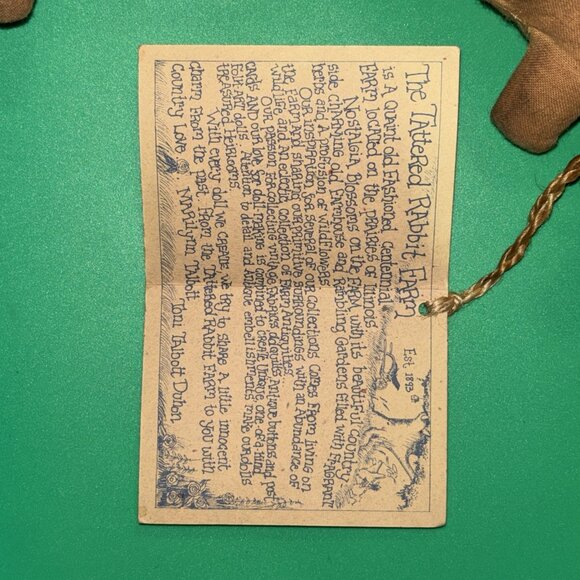 The Tattered Rabbit Farm
Est 1893
is a quaint old fashioned centennial
farm located on the prairies of Illinois
Nostalgia Blossoms on the farm with its beautiful country
side charming old farmhouse and Rambling Gardens filled with fragrant
herbs and a profusion of wildflowers
Our inspiration for several of our collections comes from living on
the farm and sharing our primitive surroundings with an abundance of
wild life and an eclectic collection of Farm Antiquities...
Our passion for collecting vintage fabrics old quilts antique buttons and post
cards and our love for doll making is combined to create unique, one of a kind
folk art dolls. Attention to detail and antique embellishments make our dolls
treasured heirlooms
With every doll we create we try to share a little innocent
charm from the past. From the Tattered Rabbit Farm to you with
Country Love Marilynn Talbott Toni Talbott Dutton